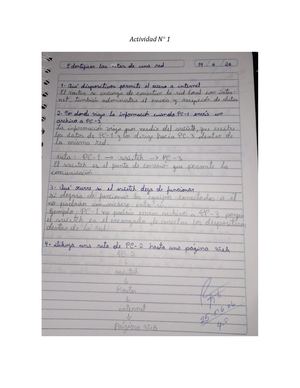 Actividad N° 1
Identificar las rutas de una red
1- Qué dispositivo permite el acceso a internet
El router se encarga de conectar la red local con inter-
net, también administra el envío y recepción de datos
2- Por donde viaja la información cuando PC-1 envía un
archivo a PC-3
La información viaja por medio del switch, que recibe
los datos de PC-1 y los dirige hacia PC-3 dentro de
la misma red.
ruta: PC-1 → switch → PC-3
El switch es el punto de conexión que permite la
comunicación
3- Qué ocurre si el switch deja de funcionar
si dejara de funcionar los equipos conectados a él
no podrían comunicarse entre sí.
Ejemplo: PC-1 no podría enviar archivo a PC-3 porque
el switch es el encargado de conectar los dispositivos
dentro de la red.
4- dibuja una ruta de PC-2 hasta una página web
PC-2
↓
switch
↓
Router
↓
internet
↓
Página web